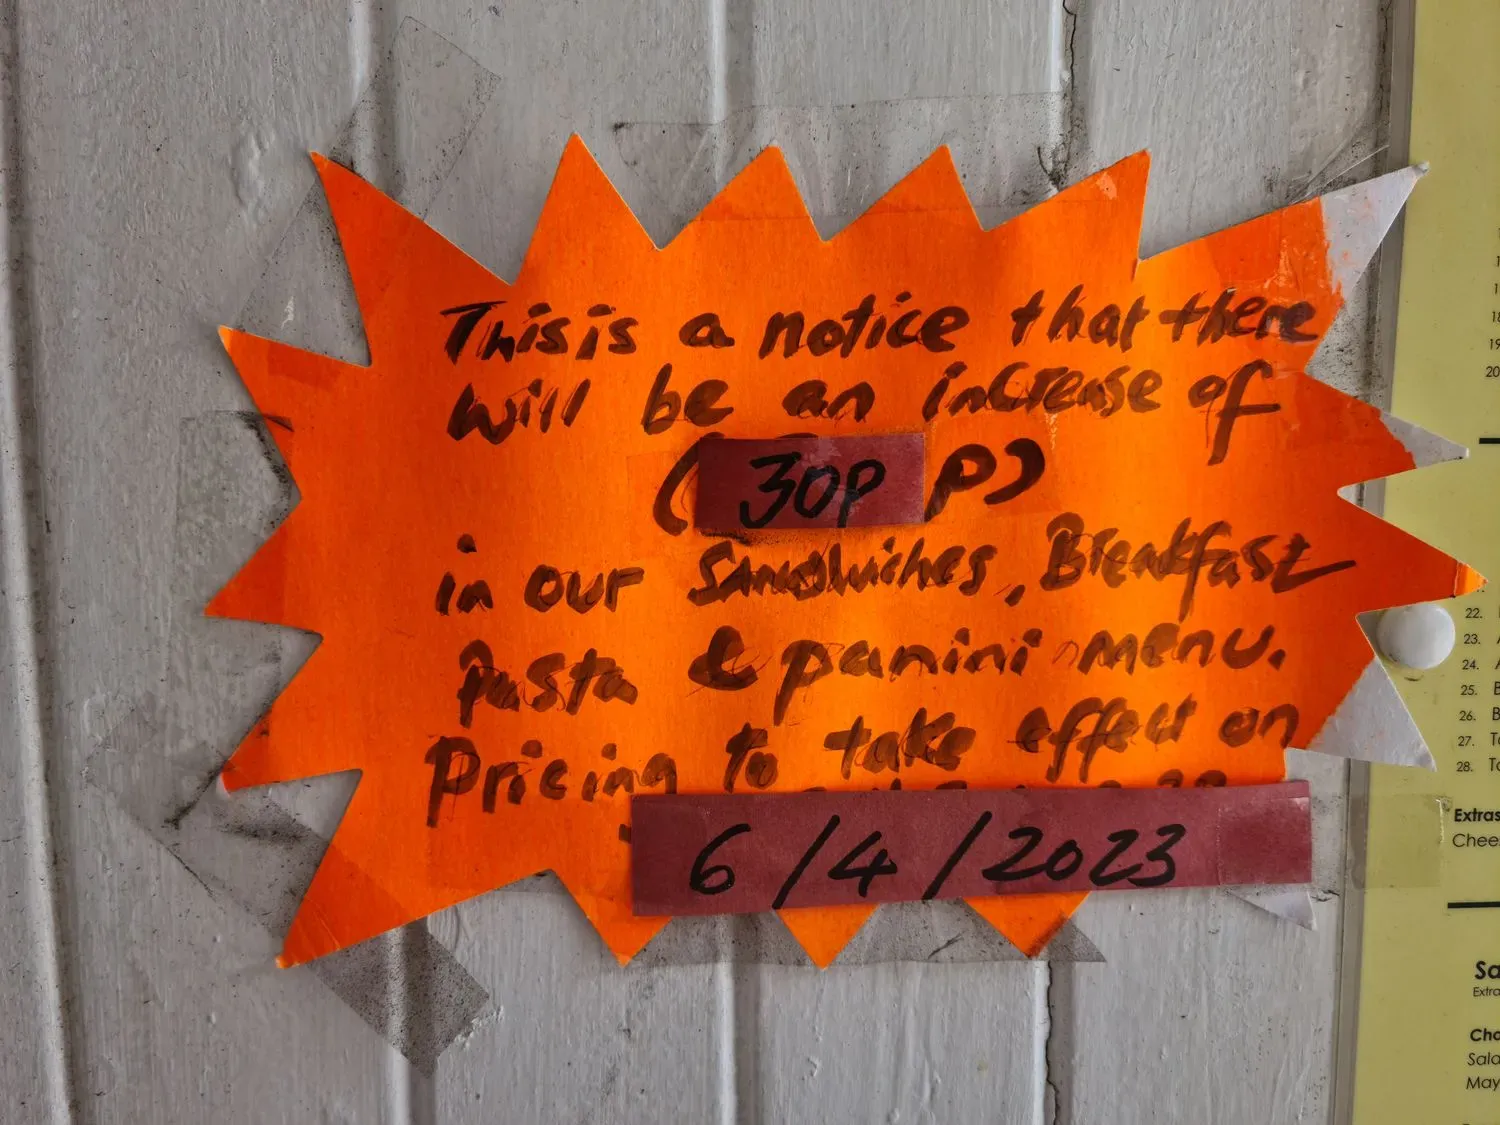 This is a notice that there
will be an increase of
(30p p)
in our Sandwiches, Breakfast
Pasta & panini menu.
Pricing to take effect on
6/4/2023
18
19
20
22.
23.
24.
25.
26.
27.
28.
Extras
Chee
Extra
Sala
May